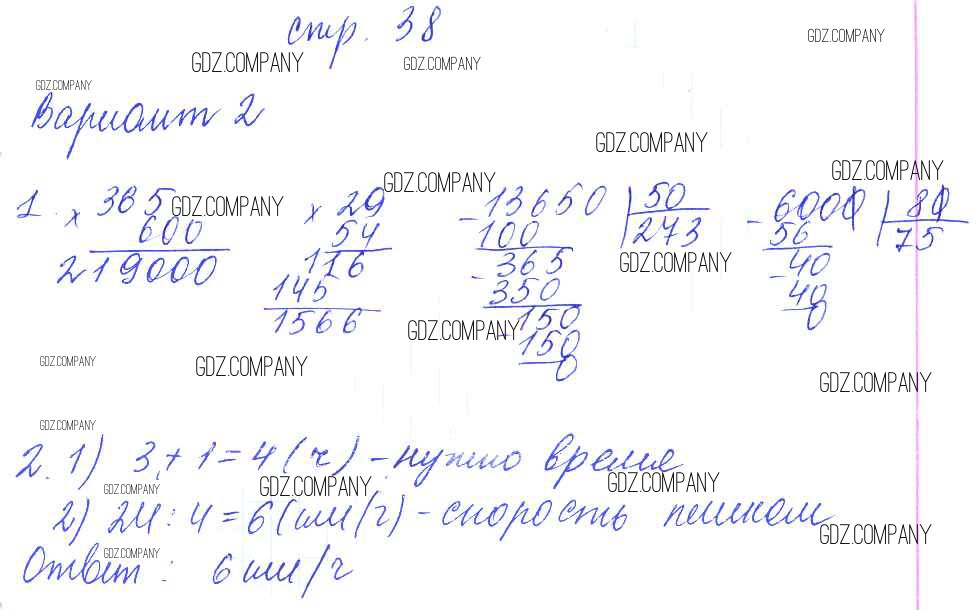 стр. 38
GDZ.COMPANY GDZ.COMPANY GDZ.COMPANY
GDZ.COMPANY
Вариант 2
GDZ.COMPANY
GDZ.COMPANY GDZ.COMPANY
1. × 365 × 29 - 13650 | 50 - 6000 | 80
GDZ.COMPANY
600 54 100 273 56 75
219000 116 - 365 - 40
GDZ.COMPANY
145 350 40
1566 - 150 0
GDZ.COMPANY
150
0
GDZ.COMPANY GDZ.COMPANY GDZ.COMPANY
GDZ.COMPANY
2. 1) 3 + 1 = 4 (ч) - нужно время
GDZ.COMPANY GDZ.COMPANY GDZ.COMPANY
2) 24 : 4 = 6 (км/ч) - скорость пешком
GDZ.COMPANY
GDZ.COMPANY
Ответ: 6 км/ч